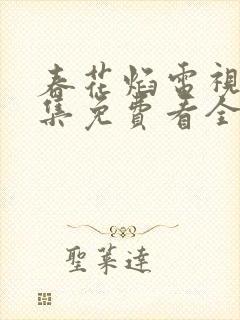 春花焰電視
集免費看全
聖萊達